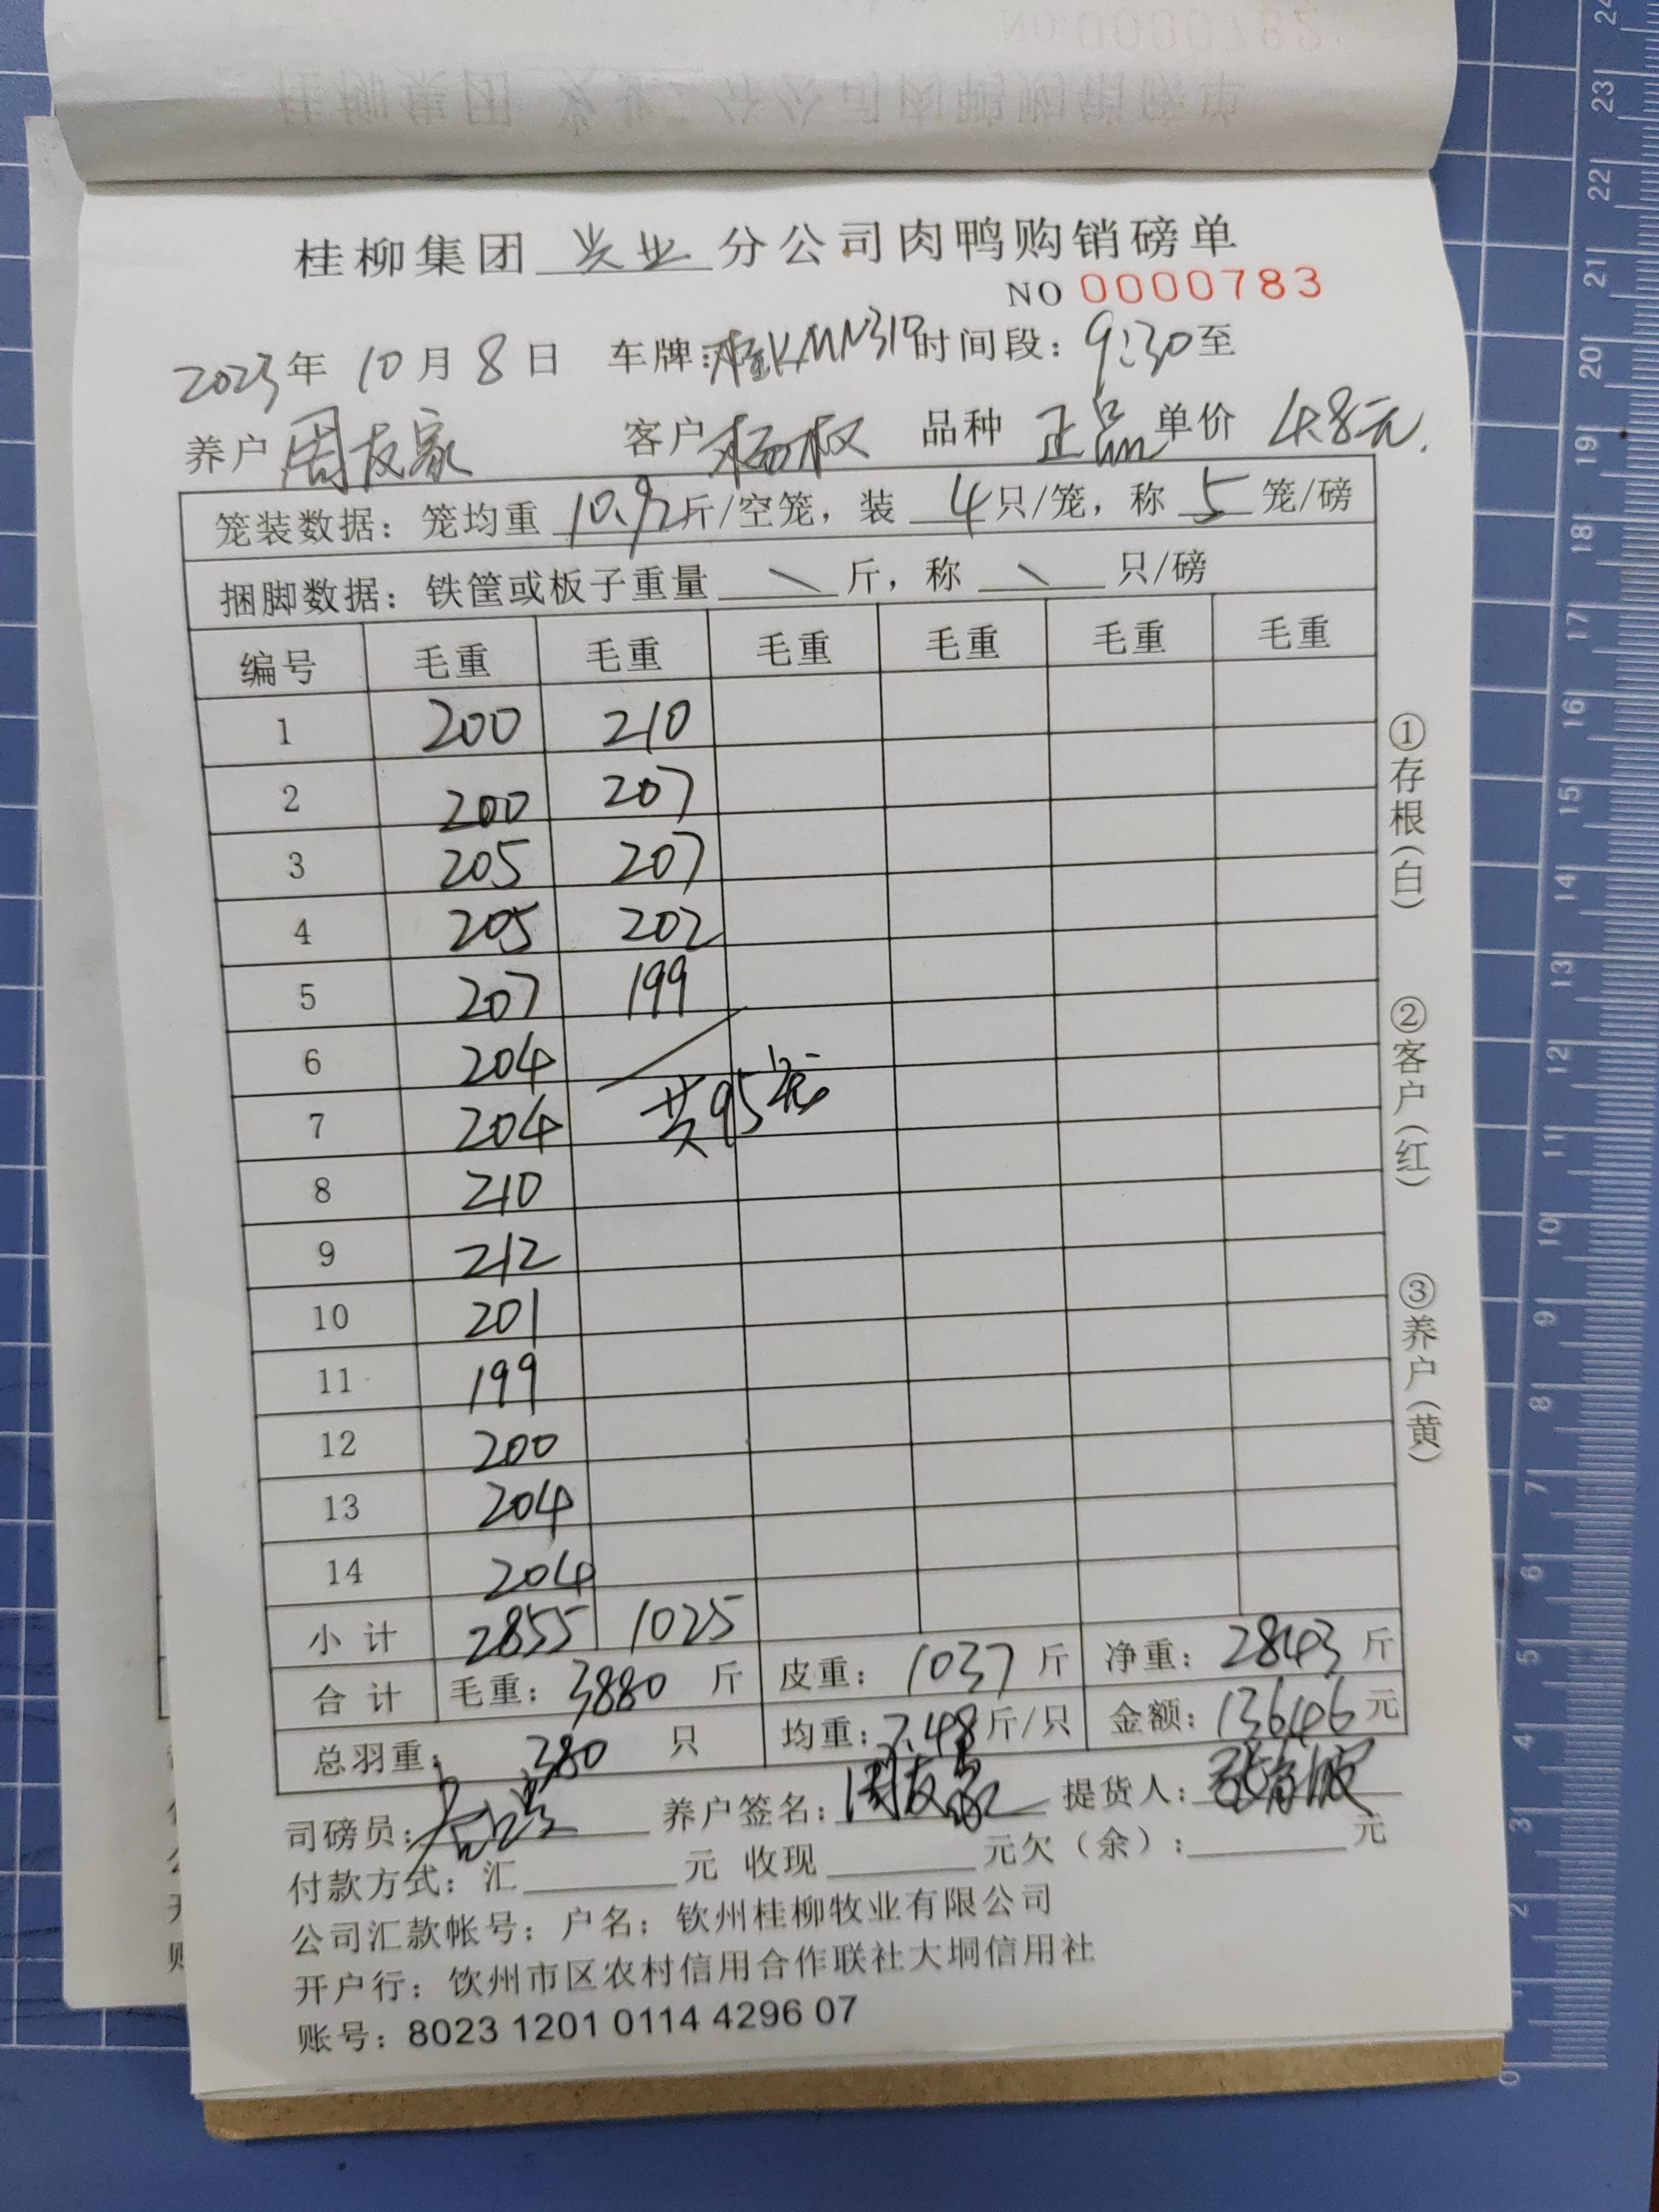 桂柳集团 兴业 分公司肉鸭购销磅单
NO 0000783
2023年 10月 8日 车牌:桂KMN310 时间段: 9:30至
养户 周友家 客户 杨权 品种 正品 单价 4.8元.
笼装数据: 笼均重 10.92斤/空笼, 装 4只/笼, 称 5笼/磅
捆脚数据: 铁筐或板子重量 \ 斤, 称 \ 只/磅
编号 毛重 毛重 毛重 毛重 毛重 毛重
1 200 210
2 200 207
3 205 207
4 205 202
5 207 199
6 204
7 204 共95笼
8 210
9 212
10 201
11 199
12 200
13 204
14 204
小计 2855 1025
合计 毛重: 3880 斤 皮重: 1037 斤 净重: 2843 斤
总羽重: 380 只 均重: 7.48斤/只 金额: 13646元
司磅员: 养户签名: 周友家 提货人:
付款方式: 汇 元 收现 元欠(余): 元
公司汇款帐号: 户名: 钦州桂柳牧业有限公司
开户行: 钦州市区农村信用合作联社大垌信用社
账号: 8023 1201 0114 4296 07
①存根(白)
②客户(红)
③养户(黄)